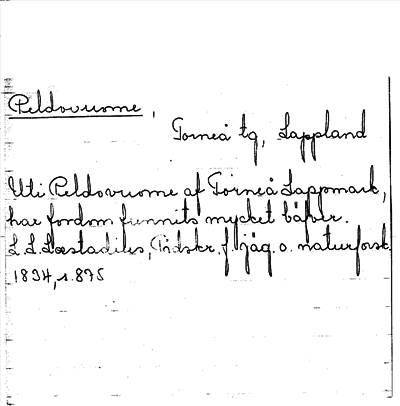 Peldovuome,
Torneå tg, Lappland
Uti Peldovuome af Torneå Lappmark,
har fordom funnits mycket bäfver.
L. L. Læstadius, Tidskr. f. jäg. o. naturforsk.
1834, s. 875